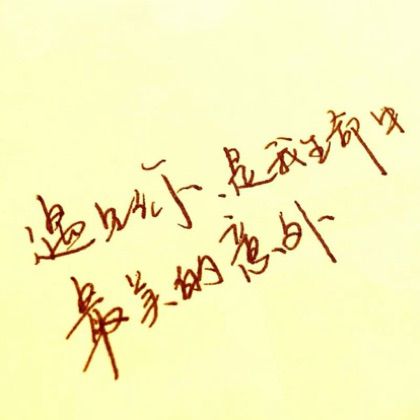 遇见你、是我生命中
最美的意外